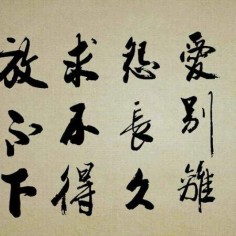 愛別離
怨長久
求不得
放不下